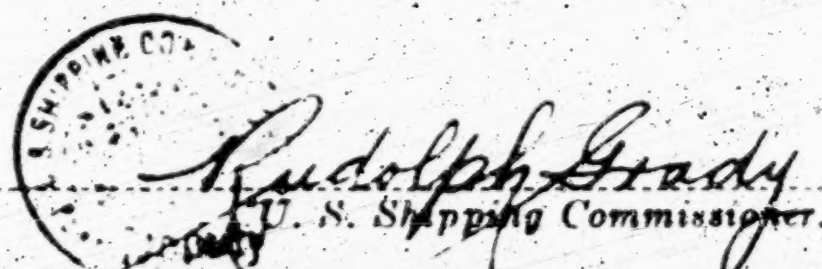 U. S. SHIPPING CO
Rudolph Grady
U. S. Shipping Commissioner.